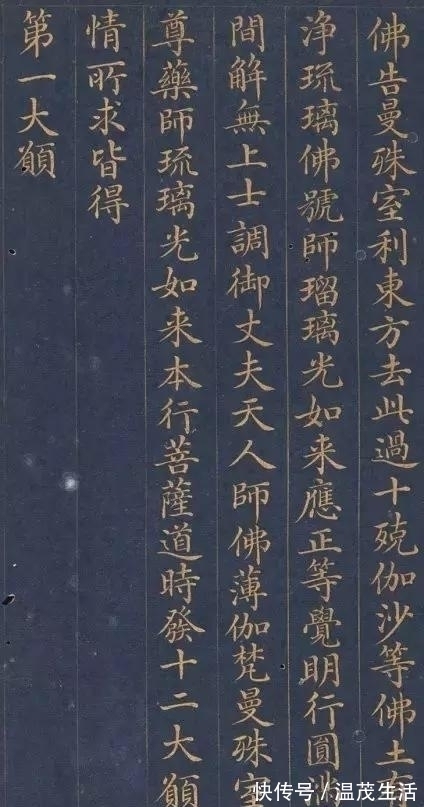 佛告曼殊室利東方去此過十殑伽沙等佛土有
浄琉璃佛號師瑠璃光如来應正等覺明行圓滿
間解無上士調御丈夫天人師佛薄伽梵曼殊室
尊藥師琉璃光如来本行菩薩道時發十二大願
情所求皆得
第一大願
快传号/温茂生活